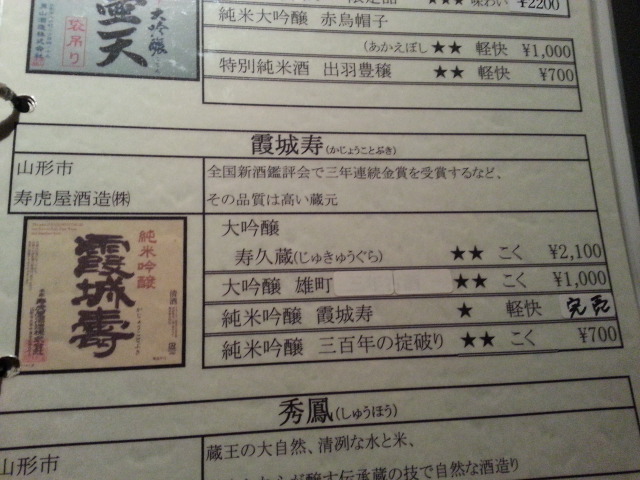 ★★★ 味わい ¥2200
純米大吟醸 赤烏帽子
(あかえぼし ★★ 軽快 ¥1,000
特別純米酒 出羽豊穣 ★★ 軽快 ¥700
大吟醸
袋吊り
天
霞城寿(かじょうことぶき)
山形市
寿虎屋酒造㈱
全国新酒鑑評会で三年連続金賞を受賞するなど、
その品質は高い蔵元
純米吟醸
霞城壽
清酒
大吟醸
寿久蔵(じゅきゅうぐら) ★★ こく ¥2,100
大吟醸 雄町 ★★ こく ¥1,000
純米吟醸 霞城寿 ★ 軽快 完売
純米吟醸 三百年の掟破り ★★ こく ¥700
秀鳳(しゅうほう)
山形市
蔵王の大自然、清冽な水と米、
醸す伝承蔵の技で自然な酒造り